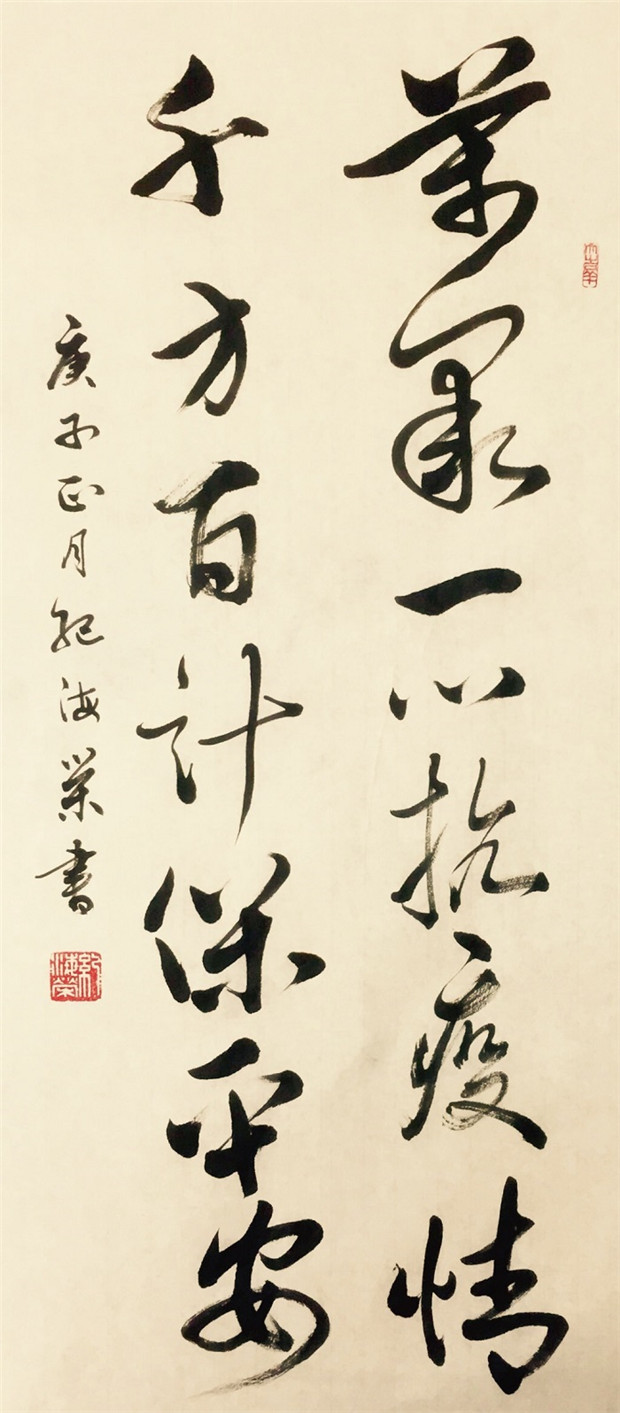 萬眾一心抗疫情
千方百計保平安
庚子正月紀海榮書
紀海榮